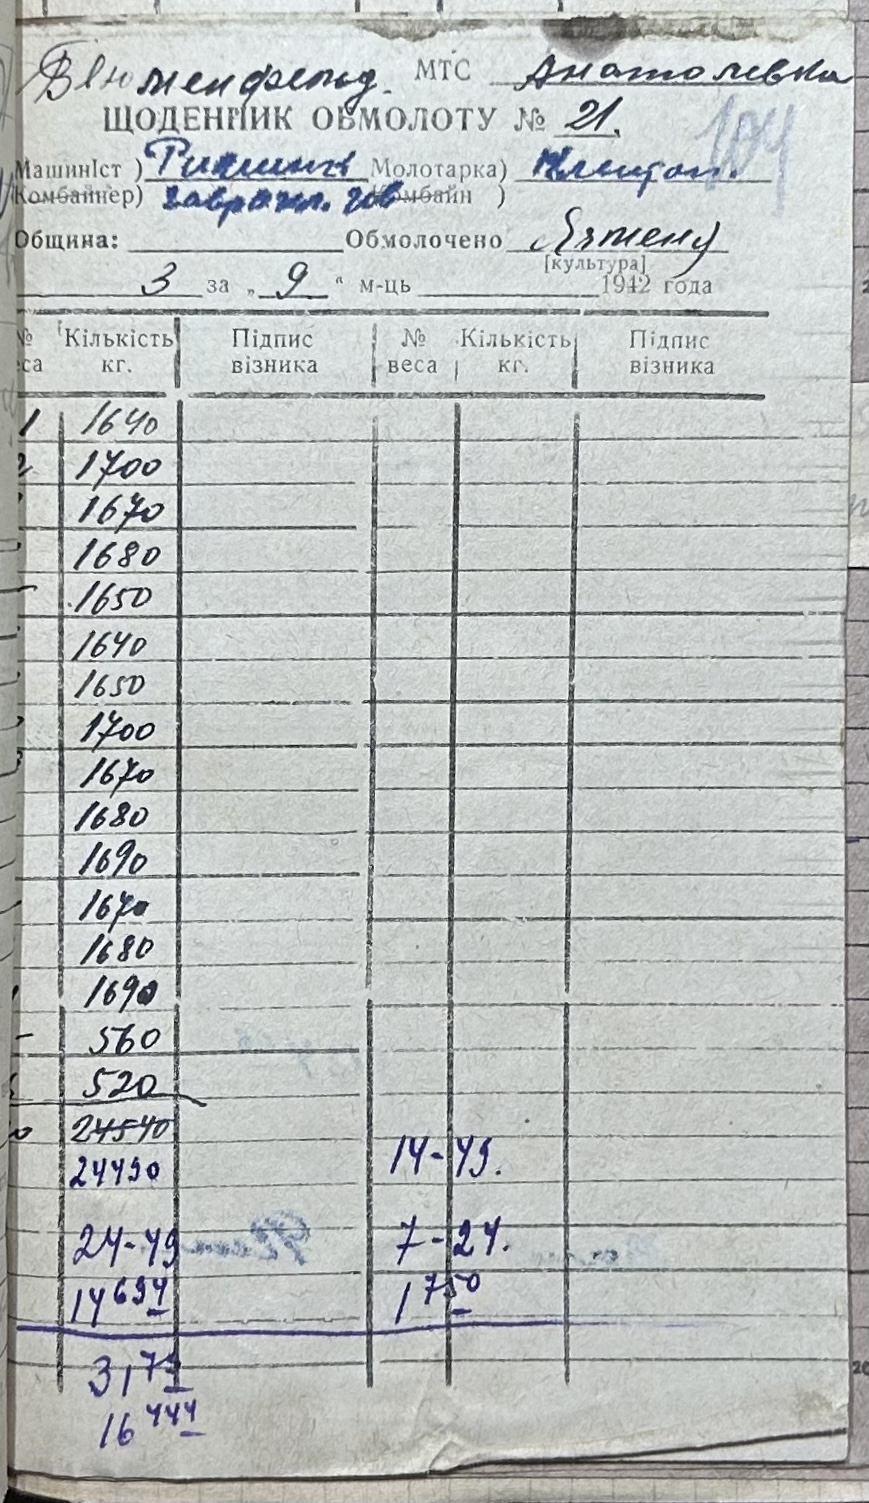 Блюменфельд. МТС Анатолевка
ЩОДЕННИК ОБМОЛОТУ № 21.
104
Машиніст ) Молотарка)
Комбайнер) Комбайн )
Община: Обмолочено Ячменя
[культура]
3 за „ 9 " м-ць 1942 года
№ Кількість Підпис № Кількість Підпис
еса кг. візника веса кг. візника
1 1640
2 1700
1670
1680
1650
1640
1650
1700
1670
1680
1690
1670
1680
1690
560
520
24540
24490 14-49.
24-49 7-24.
14694 1750
3173
16444